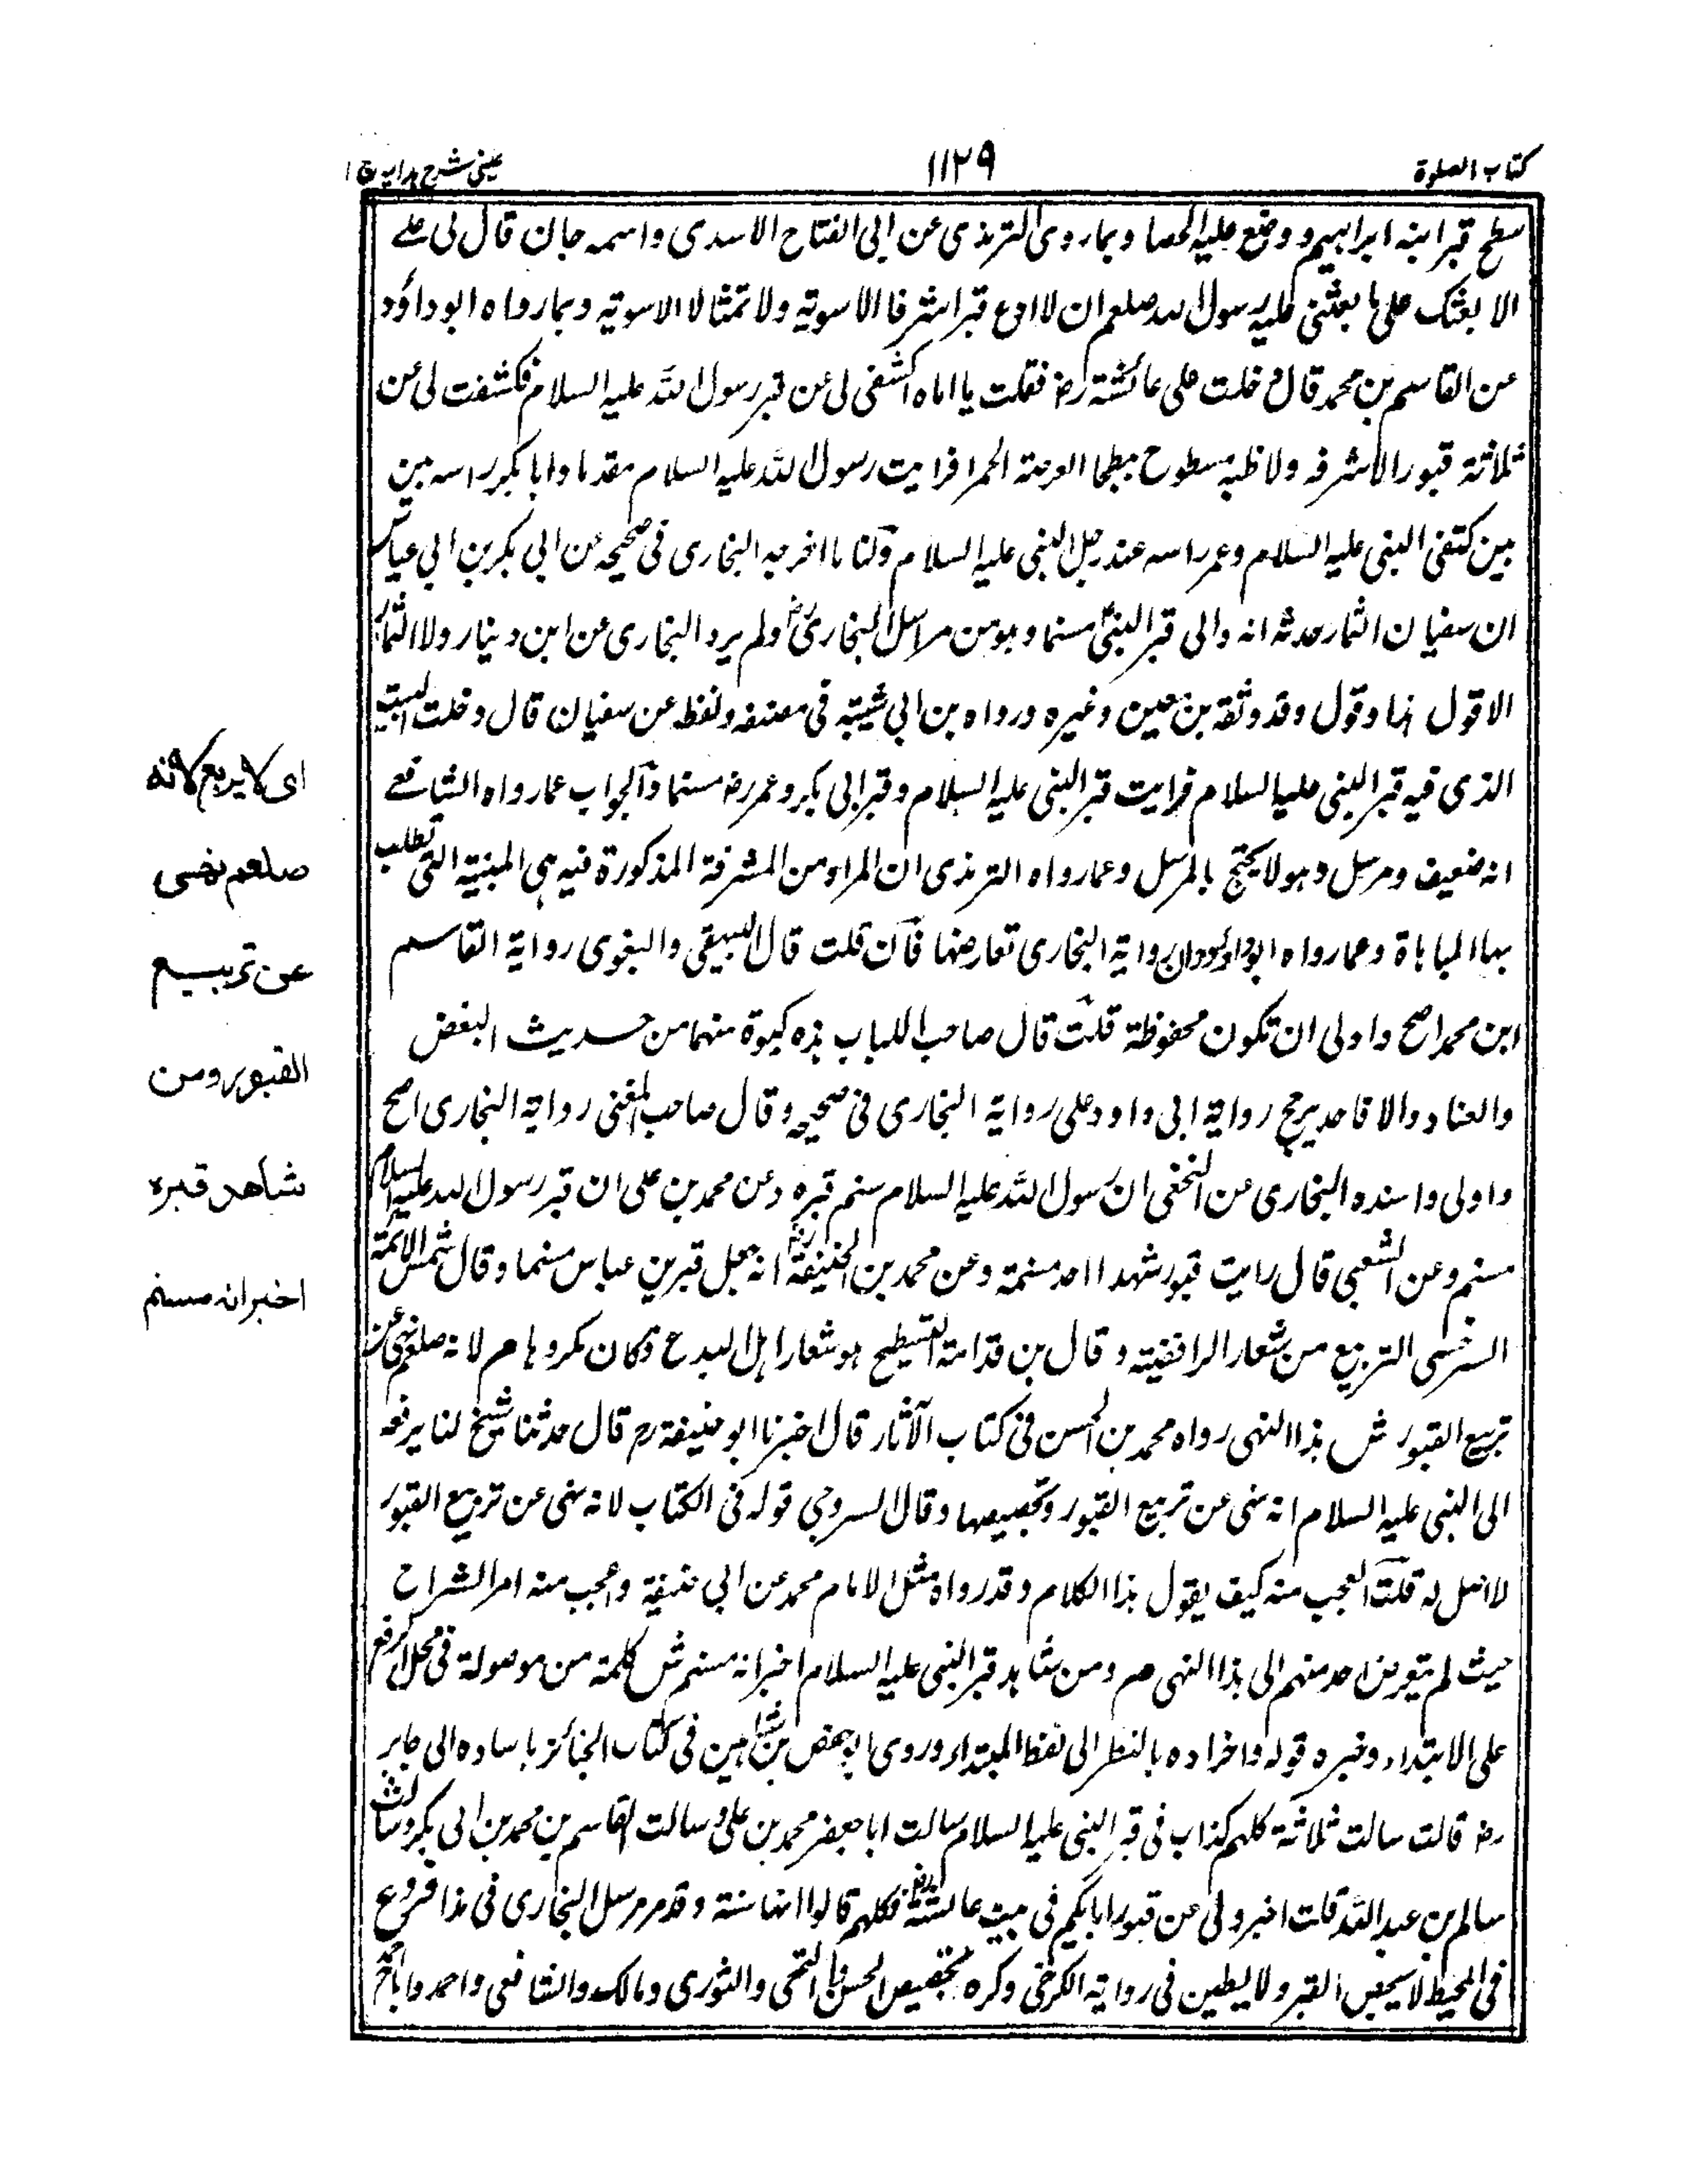 كتاب الصلوة
١١٢٩
عينى شرح هدايه ج ١
سطح قبر ابنه ابراهيم ووضع عليه الحصا وبما روى الترمذى عن ابى الفتاح الاسدى واسمه حبان قال لى على
الا ابعثك على ما بعثنى عليه رسول الله صلعم ان لا ادع قبرا مشرفا الا سويته ولا تمثالا الا سويته وبما رواه ابو داؤد
عن القاسم بن محمد قال دخلت على عائشة رضه فقلت يا اماه اكشفى لى عن قبر رسول الله عليه السلام فكشفت لى عن
ثلاثة قبور لا مشرفه ولا ظبه مسطوح ببطحا العرصة الحمرا فرايت رسول الله عليه السلام مقدما وابا بكر راسه بين
بين كتفى النبى عليه السلام وعمر راسه عند رجل النبى عليه السلام ولنا ما اخرجه البخارى فى صحيحه عن ابى بكر بن ابى عياش
ان سفيان التمار حدثه انه راى قبر النبى مسنما وهو من مراسل البخارى ولم يرو البخارى عن ابن دينار ولا التمار
الا قول هذا وقول وقد وثقه بن معين وغيره ورواه بن ابى شيبه فى مصنفه ولفظه عن سفيان قال دخلت البيت
الذى فيه قبر النبى عليه السلام فرايت قبر النبى عليه السلام وقبر ابى بكر وعمر رضه مسنما والجواب عما رواه الشافعى
انه ضعيف ومرسل وهو لا يحتج بالمرسل وعما رواه الترمذى ان المراد من المشرفة المذكورة فيه هى المبنية التى تطلب
بها المباهاة وعما رواه ابو داؤد ان رواية البخارى تعارضها فان قلت قال البيهقى والبغوى رواية القاسم
ابن محمد اصح واولى ان تكون محفوظة قلت قال صاحب اللباب هذه كبوة منهما من حديث البغض
والعناد والا فاحد يرجح رواية ابى داود على رواية البخارى فى صحيحه وقال صاحب المغنى رواية البخارى اصح
واولى واسنده البخارى عن النخعى ان رسول الله عليه السلام سنم قبره وعن محمد بن على ان قبر رسول الله عليه السلام
مسنم وعن الشعبى قال رايت قبور شهدا احد مسنمة وعن محمد بن الحنيفة رضه انه جعل قبر بن عباس مسنما وقال شمس الائمة
السرخسى التربيع من شعار الرافضيته وقال بن قدامة التسطيح هو شعار اهل البدع فكان مكروها م لانه صلعم نهى عن
تربيع القبور ش هذا النهى رواه محمد بن الحسن فى كتاب الآثار قال اخبرنا ابو حنيفة رح قال حدثنا شيخ لنا يرفعه
الى النبى عليه السلام انه نهى عن تربيع القبور وتجصيصها وقال السروجى قوله فى الكتاب لانه نهى عن تربيع القبور
لا اصل له قلت العجب منه كيف يقول هذا الكلام وقد رواه مثل الامام محمد عن ابى حنيفة واعجب منه امر الشراح
حيث لم يتعرض احد منهم الى هذا النهى م ومن شاهد قبر النبى عليه السلام اخبر انه مسنم ش كلمة من موصولة فى محل الرفع
على الابتداء وخبره قوله وافراده بالنظر الى لفظ المبتداء وروى ابو حفص بن شاهين فى كتاب الجنائز باسناده الى جابر
رضه قالت سالت ثلاثة كلهم كذاب فى قبر النبى عليه السلام سالت ابا جعفر محمد بن على وسالت القاسم بن محمد بن ابى بكر وسالت
سالم بن عبد الله قلت اخبرونى عن قبور ابابكم فى بيت عائشة رضه فكلهم قالوا انها سنة وقد مر مرسل البخارى فى هذا فروع
فى المحيط لا يجصص القبر ولا يطين فى رواية الكرخى وكره تجصيص الحسن والنخعى والثورى ومالك والشافعى واحمد واباح
اى لا يربع لانه
صلعم نهى
عن تربيع
القبور ومن
شاهد قبره
اخبر انه مسنم